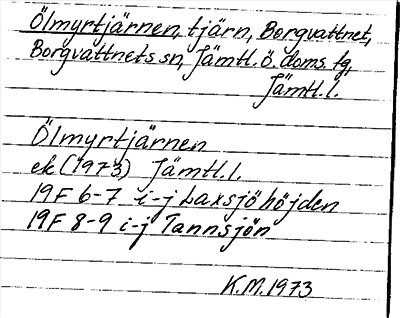 Ölmyrtjärnen, tjärn, Borgvattnet,
Borgvattnets sn, Jämtl. ö. doms. fg,
Jämtl. l.
Ölmyrtjärnen
ek (1973) Jämtl. l.
19F 6-7 i-j Laxsjöhöjden
19F 8-9 i-j Tannsjön
K.M. 1973